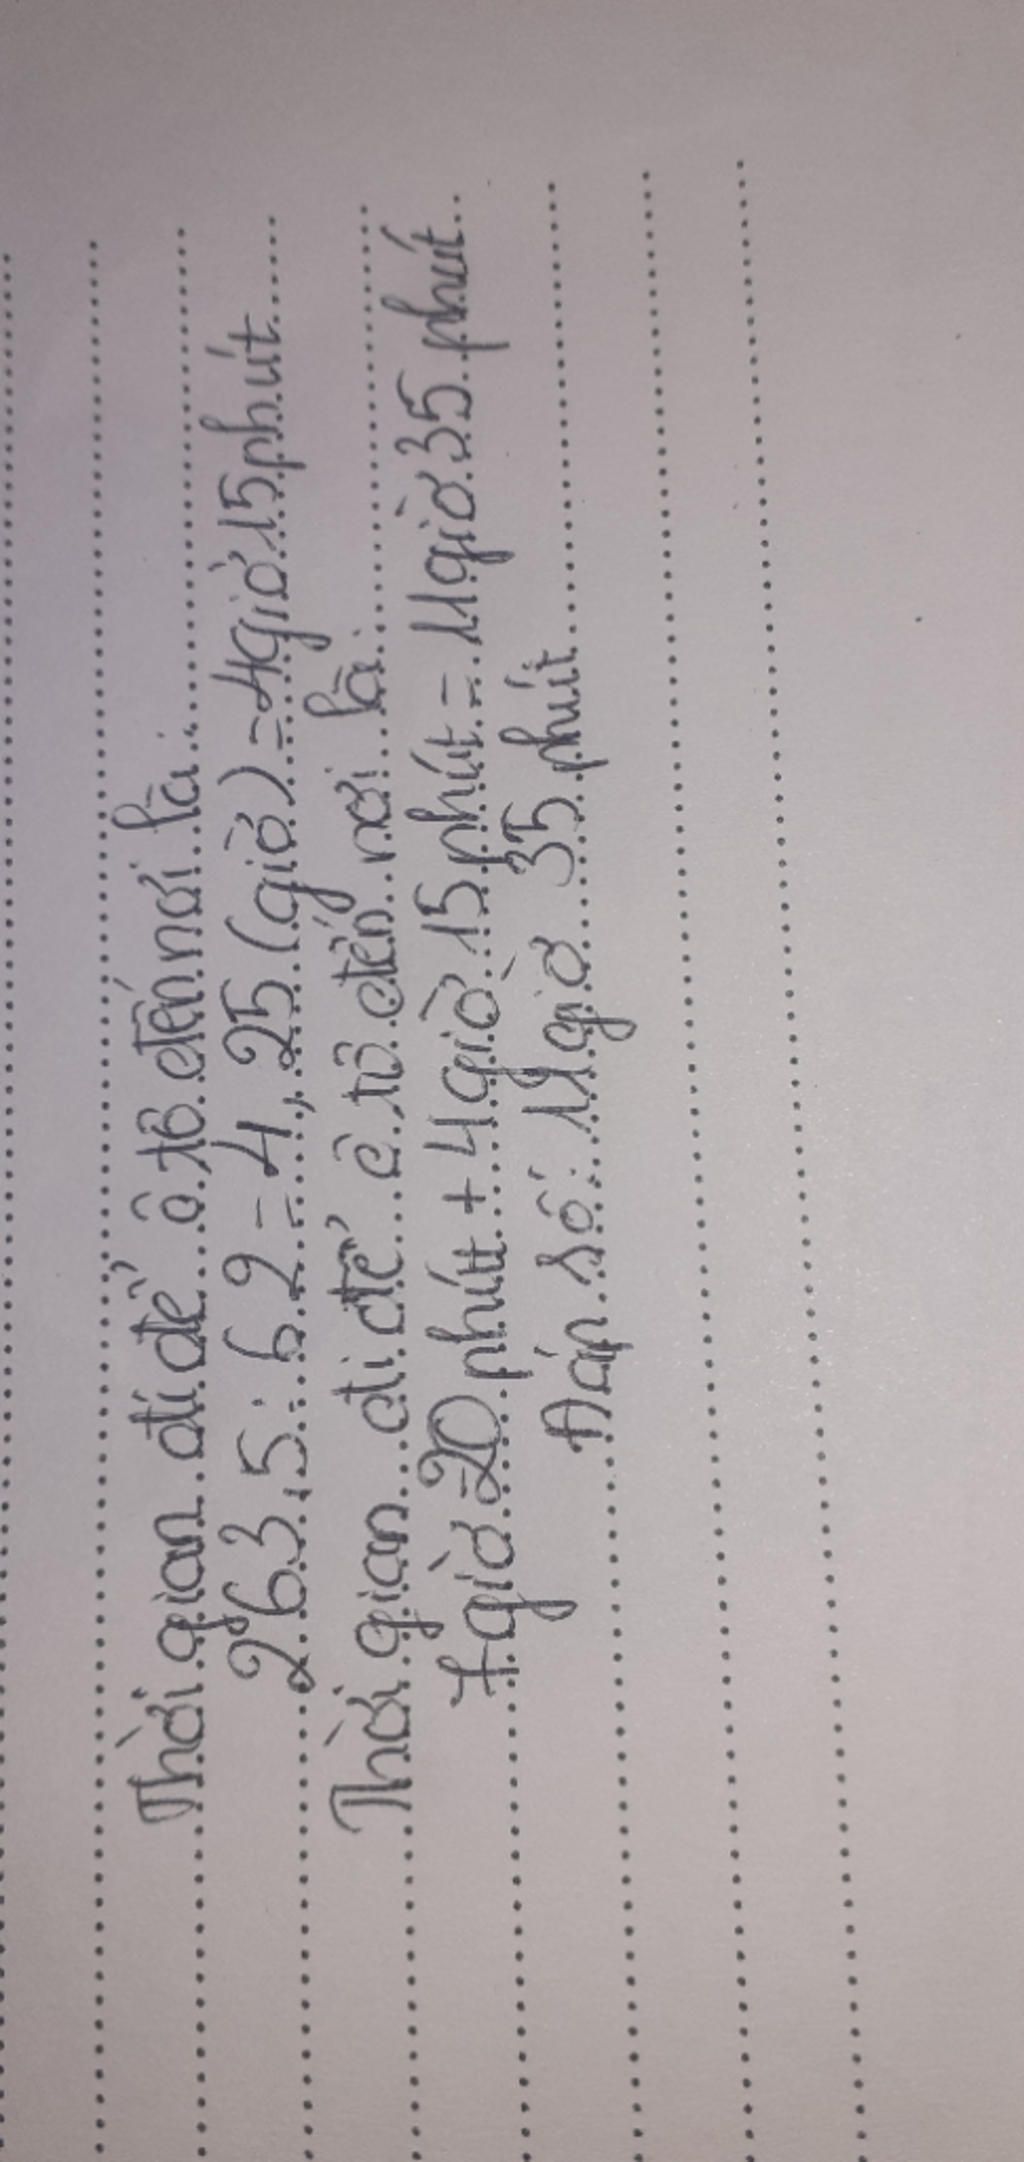 Thời gian đi để ô tô đến nơi là:
263,5 : 62 = 4,25 (giờ) = 4giờ 15phút
Thời gian đi để ô tô đến nơi là:
7giờ 20 phút + 4giờ 15phút = 11giờ 35 phút
Đáp số: 11giờ 35 phút